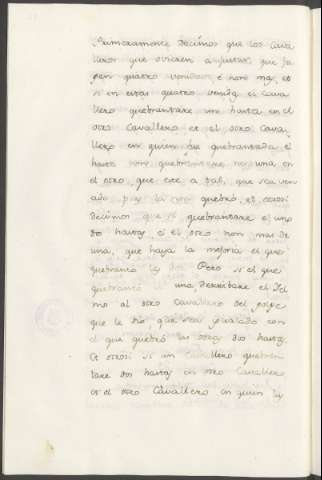 Primeramente decimos que los Cava
lleros que ovieren a justar, que fa
gan quatro venidas é non mas, et
si en estas quatro venidas el Cava
llero quebrantare un hasta en el
otro Cavallero et el otro Cava
llero en quien fue quebrantada el
hasta non quebrantare ninguna en
el otro, que este a tal, que sea ven
cido p. la non quebró, et otrosi
decimos que si quebrantare el uno
dos hastas é el otro non mas de
una, que haya la mejoria el que
quebranta las dos. Pero si el que
quebrantó una derribare el Yel
mo al otro Cavallero del golpe
que le dió, que sea igualado con
el que quebró las otras dos hastas
Et otrosi si un Cavallero quebran
tare dos hastas en otro Cavallero
et el otro Cavallero en quien las